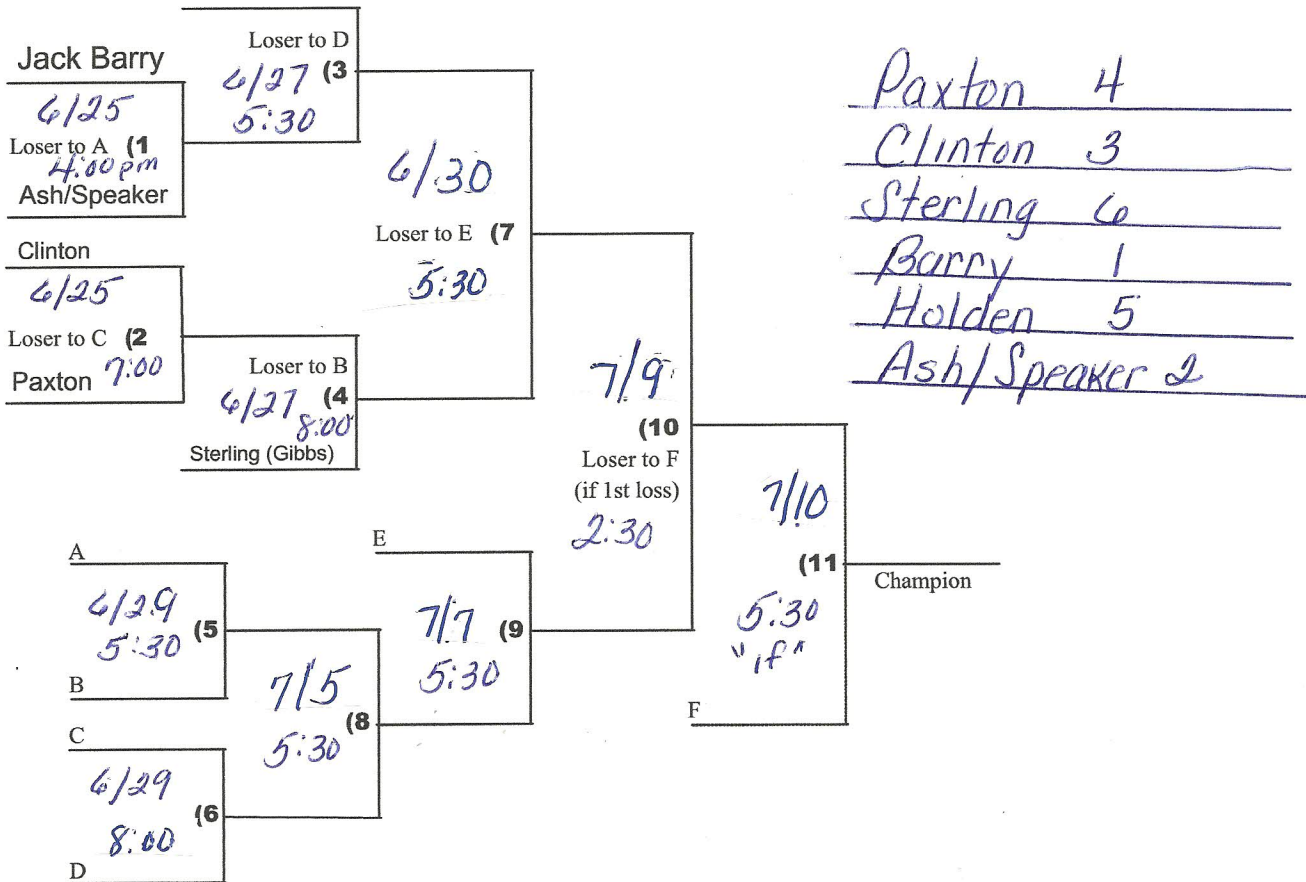 Jack Barry
6/25
Loser to A (1
4:00 pm
Ash/Speaker
Loser to D
6/27 (3
5:30
Clinton
6/25
Loser to C (2
7:00
Paxton
Loser to B
6/27 (4
8:00
Sterling (Gibbs)
6/30
Loser to E (7
5:30
7/9
(10
Loser to F
(if 1st loss)
2:30
7/10
(11
5:30
"if"
Champion
F
A
6/29
5:30 (5
B
C
6/29
(6
8:00
D
7/5
(8
5:30
E
7/7 (9
5:30
Paxton 4
Clinton 3
Sterling 6
Barry 1
Holden 5
Ash/Speaker 2